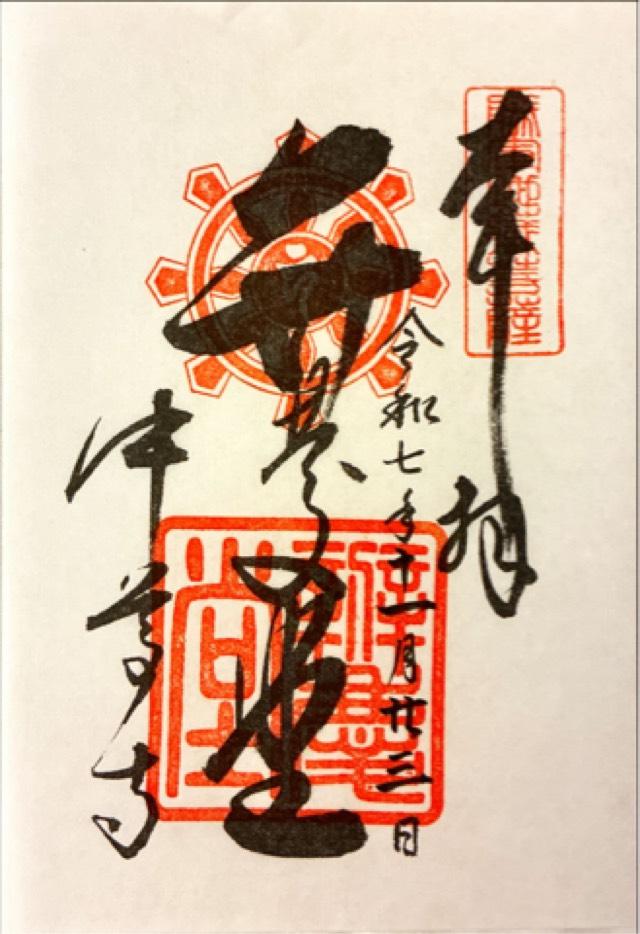 奉拝
令和七年十一月廿三日
弁慶堂
中尊寺